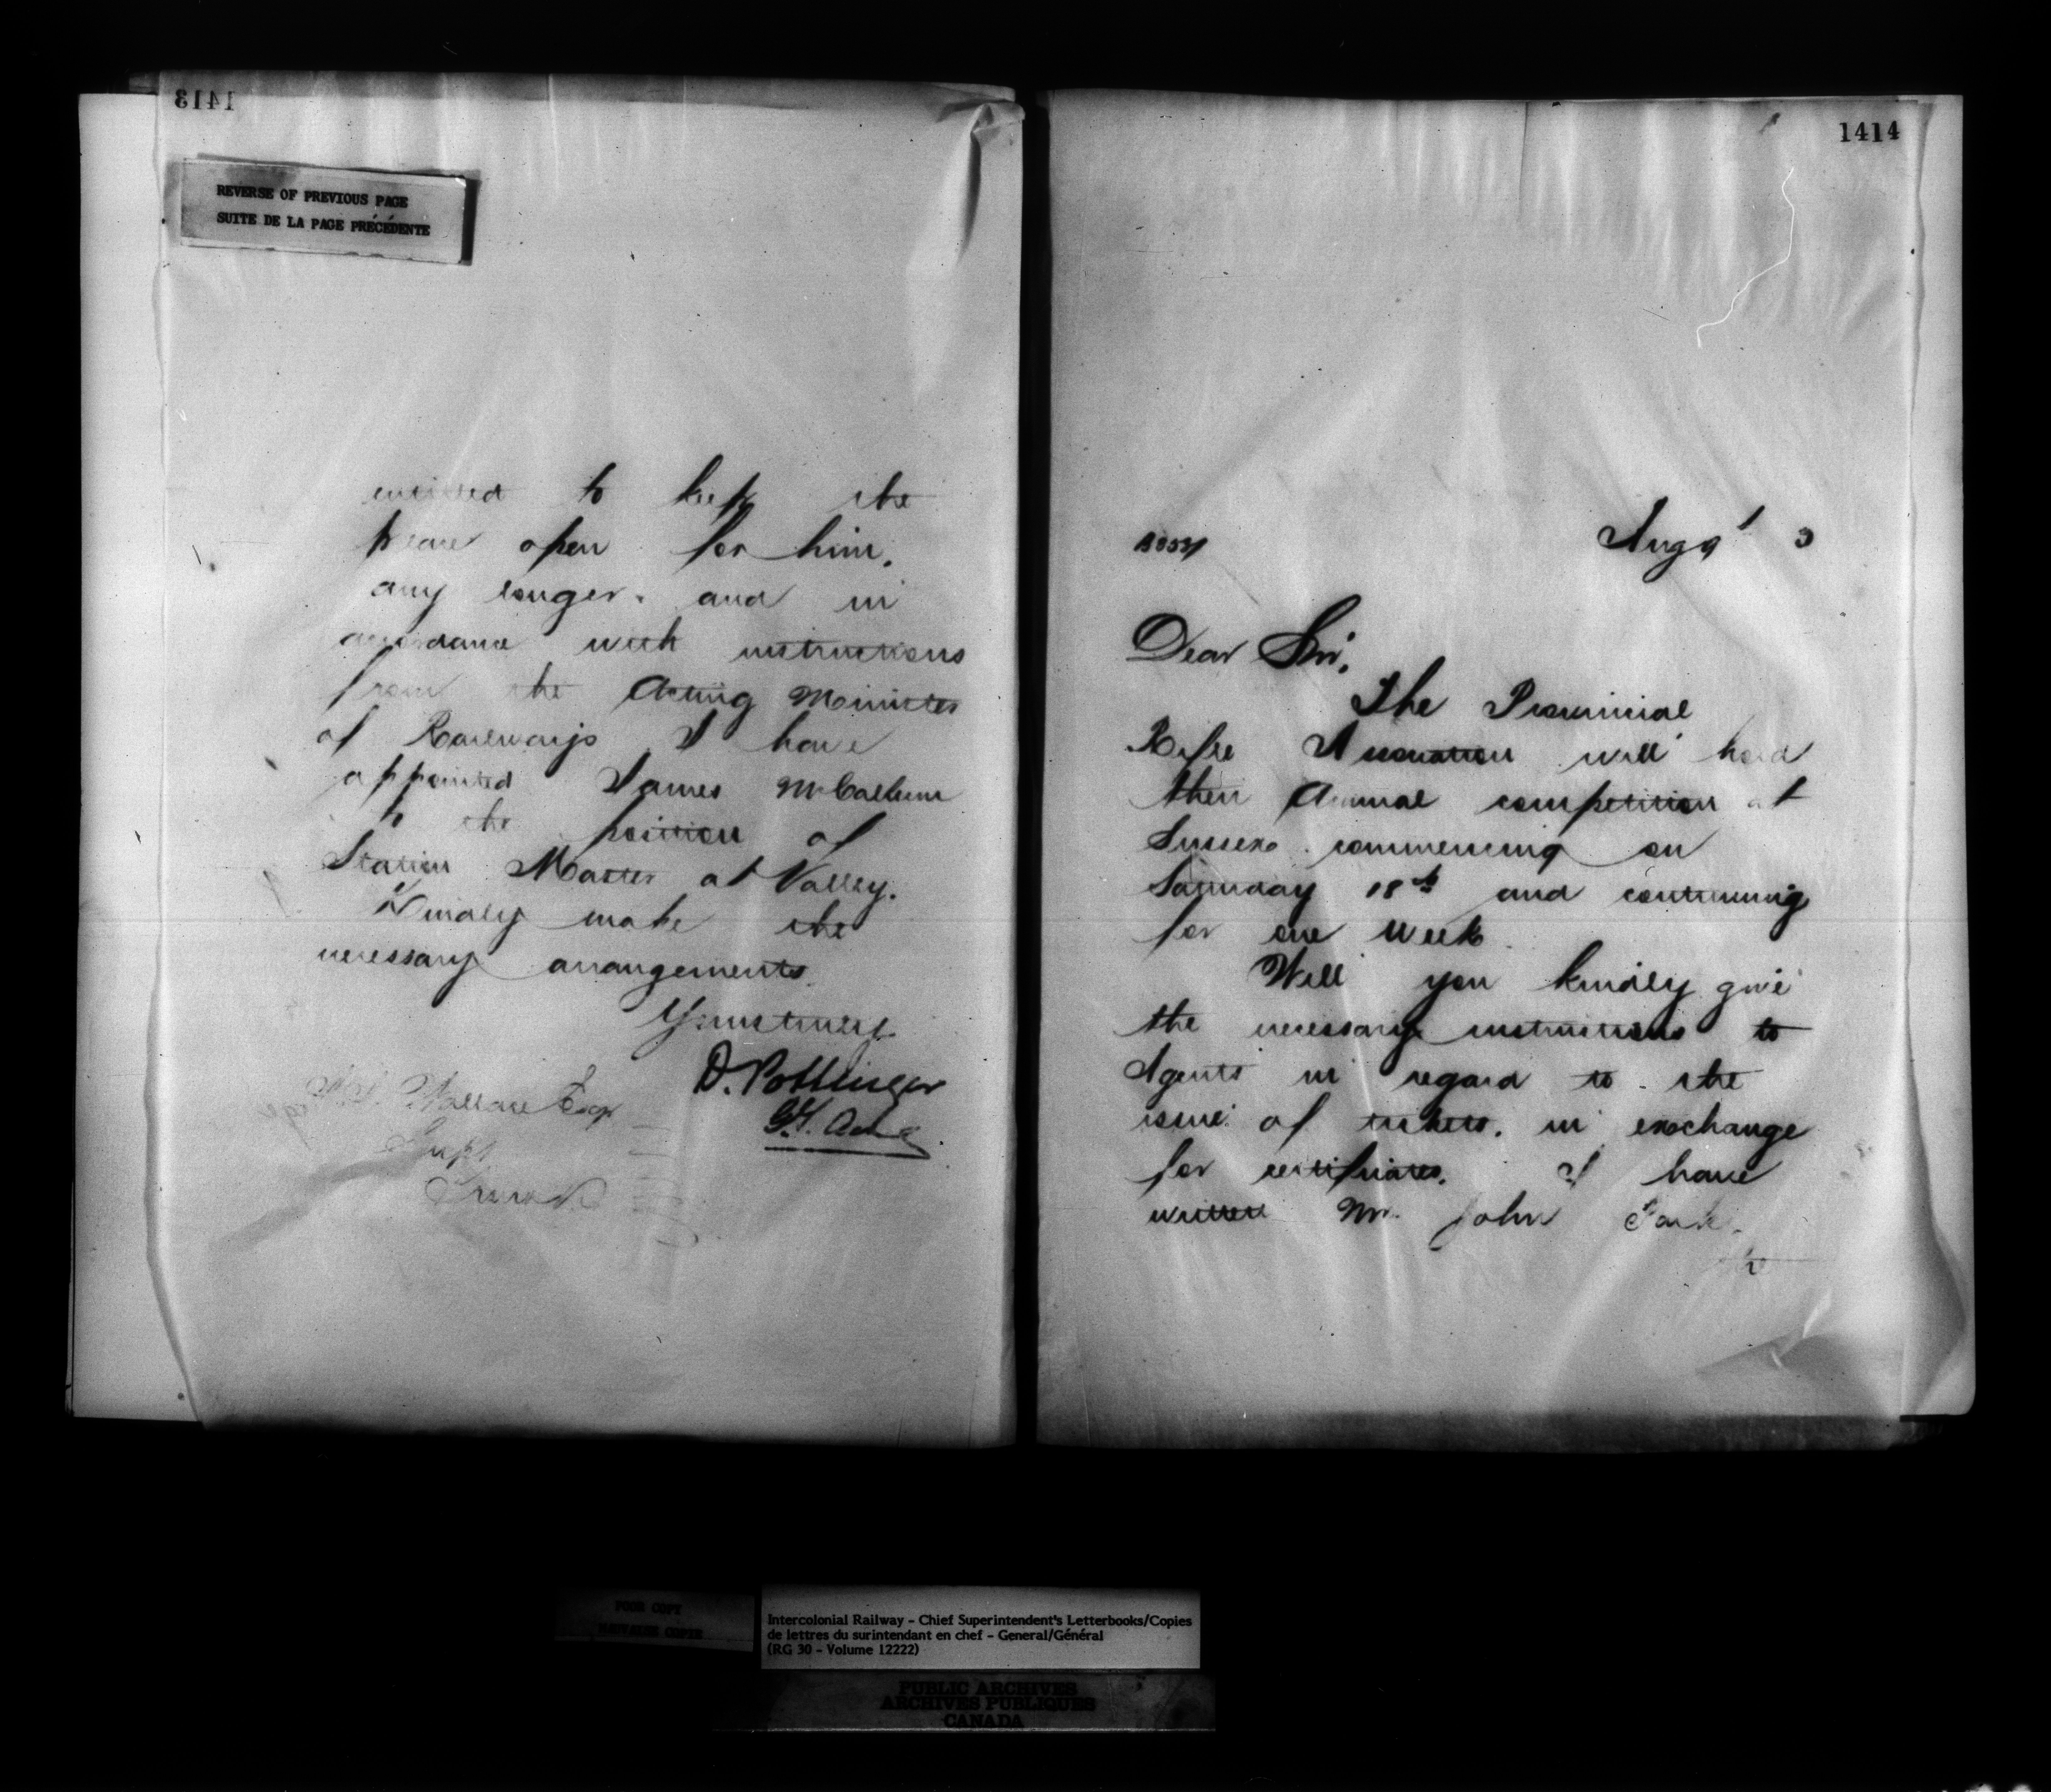 1413
REVERSE OF PREVIOUS PAGE
SUITE DE LA PAGE PRÉCÉDENTE
to keep the
place open for him,
any longer. and in
accordance with instructions
from the Acting Minister
of Railways I have
appointed James McCallum
to the position of
Station Master at Valley.
Kindly make the
necessary arrangements.
Yours truly
D. Pottinger
Wallace Esqr
Supt
Truro
1414
Augt 3
Dear Sir,
The Provincial
Rifle Association will hold
their Annual competition at
Sussex commencing on
Saturday 18th and continuing
for one week.
Will you kindly give
the necessary instructions to
Agents in regard to the
issue of tickets, in exchange
for certificates. I have
written Mr. John
POOR COPY
MAUVAISE COPIE
Intercolonial Railway - Chief Superintendent's Letterbooks/Copies
de lettres du surintendant en chef - General/Général
(RG 30 - Volume 12222)
PUBLIC ARCHIVES
ARCHIVES PUBLIQUES
CANADA